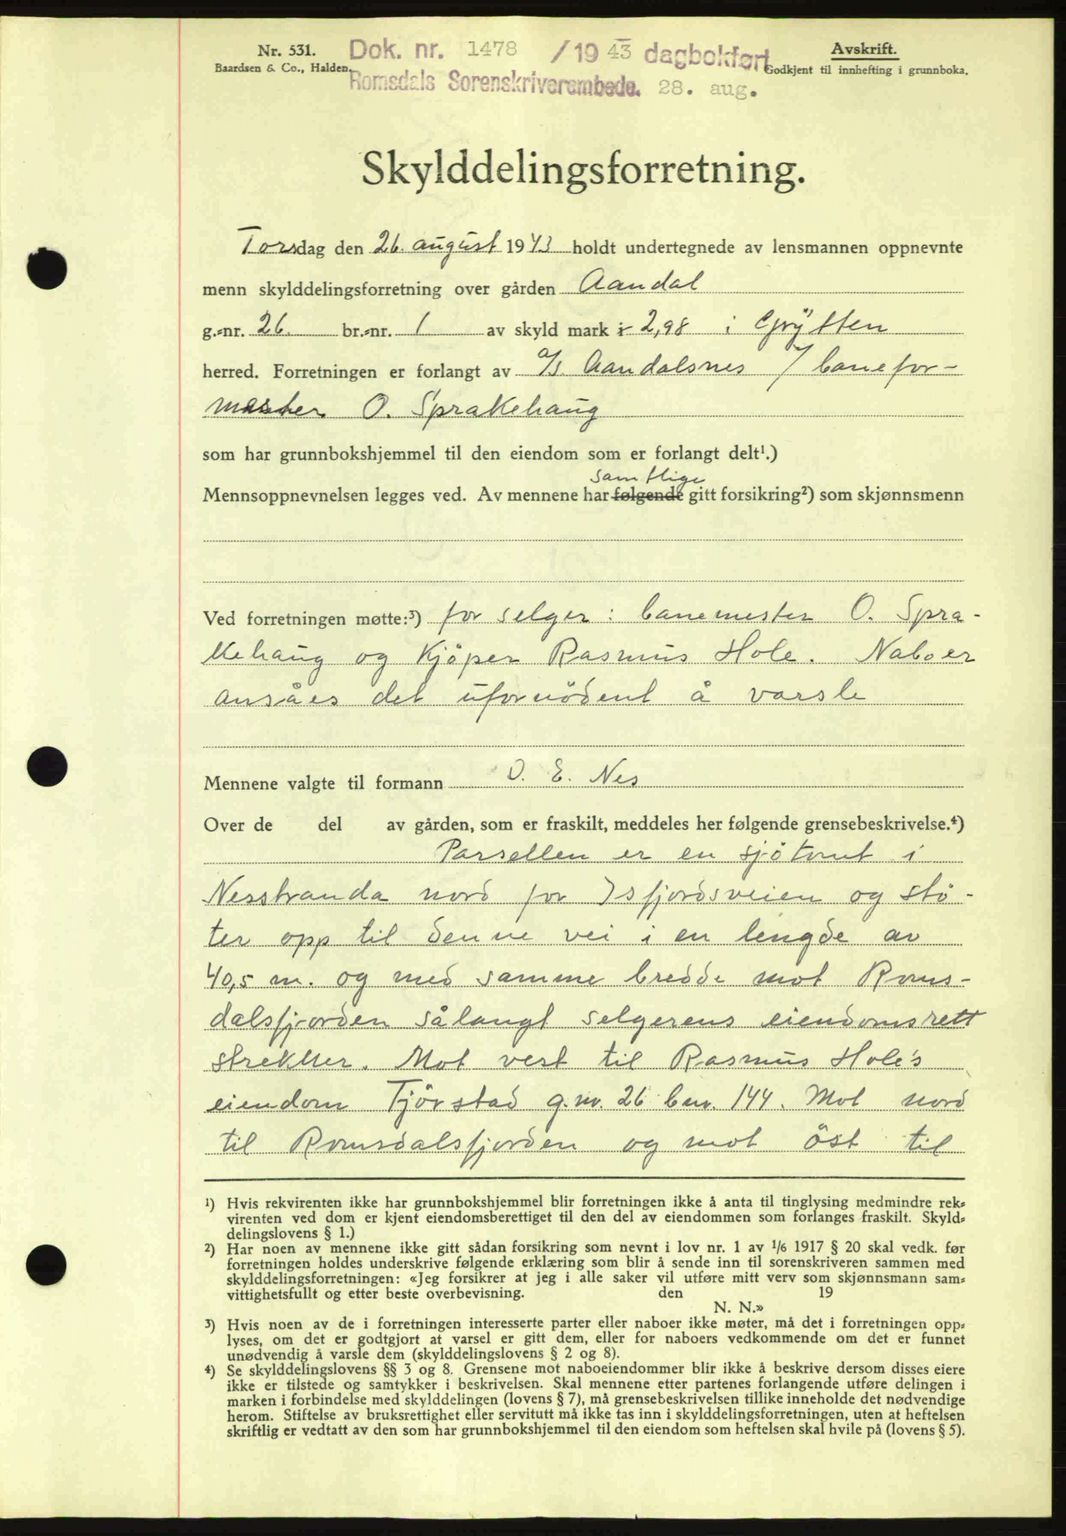 Nr. 531.
Baardsen & Co., Halden.
Dok. nr. 1478 / 19 43 dagbokført
Romsdals Sorenskriverembede. 28. aug.
Avskrift.
Godkjent til innhefting i grunnboka.
Skylddelingsforretning.
Torsdag den 26. august 1943 holdt undertegnede av lensmannen oppnevnte
menn skylddelingsforretning over gården Aandal
g.-nr. 26 br.-nr. 1 av skyld mark 2,98 i Grytten
herred. Forretningen er forlangt av a/s Aandalsnes / banefor-
mester O. Sprakehaug
som har grunnbokshjemmel til den eiendom som er forlangt delt¹.)
samtlige
Mennsoppnevnelsen legges ved. Av mennene har følgende gitt forsikring²) som skjønnsmenn
Ved forretningen møtte:³) for selger: banemester O. Spra-
kehaug og kjöper Rasmus Hole. Naboer
ansåes det ufornödent å varsle
Mennene valgte til formann O. E. Nes
Over de del av gården, som er fraskilt, meddeles her følgende grensebeskrivelse.⁴)
Parsellen er en sjötomt i
Nesstranda nord for Isfjordsveien og stö-
ter opp til denne vei i en lengde av
40,5 m. og med samme bredde mot Roms-
dalsfjorden sålangt selgerens eiendomsrett
strekker. Mot vest til Rasmus Hole's
eiendom Tjörstad g.nr. 26 bnr. 144. Mot nord
til Romsdalsfjorden og mot öst til
¹) Hvis rekvirenten ikke har grunnbokshjemmel blir forretningen ikke å anta til tinglysing medmindre rek-
virenten ved dom er kjent eiendomsberettiget til den del av eiendommen som forlanges fraskilt. Skyld-
delingslovens § 1.)
²) Har noen av mennene ikke gitt sådan forsikring som nevnt i lov nr. 1 av ¹/6 1917 § 20 skal vedk. før
forretningen holdes underskrive følgende erklæring som blir å sende inn til sorenskriveren sammen med
skylddelingsforretningen: «Jeg forsikrer at jeg i alle saker vil utføre mitt verv som skjønnsmann sam-
vittighetsfullt og etter beste overbevisning. den 19
N. N.»
³) Hvis noen av de i forretningen interesserte parter eller naboer ikke møter, må det i forretningen opp-
lyses, om det er godtgjort at varsel er gitt dem, eller for naboers vedkommende om det er funnet
unødvendig å varsle dem (skylddelingslovens § 2 og 8).
⁴) Se skylddelingslovens §§ 3 og 8. Grensene mot naboeiendommer blir ikke å beskrive dersom disses eiere
ikke er tilstede og samtykker i beskrivelsen. Skal mennene etter partenes forlangende utføre delingen i
marken i forbindelse med skylddelingen (lovens § 7), må grensebeskrivelsen tillike inneholde det nødvendige
herom. Stiftelse av bruksrettighet eller servitutt må ikke tas inn i skylddelingsforretningen, uten at heftelsen
skriftlig er vedtatt av den som har grunnbokshjemmel til den eiendom som heftelsen skal hvile på (lovens § 5).